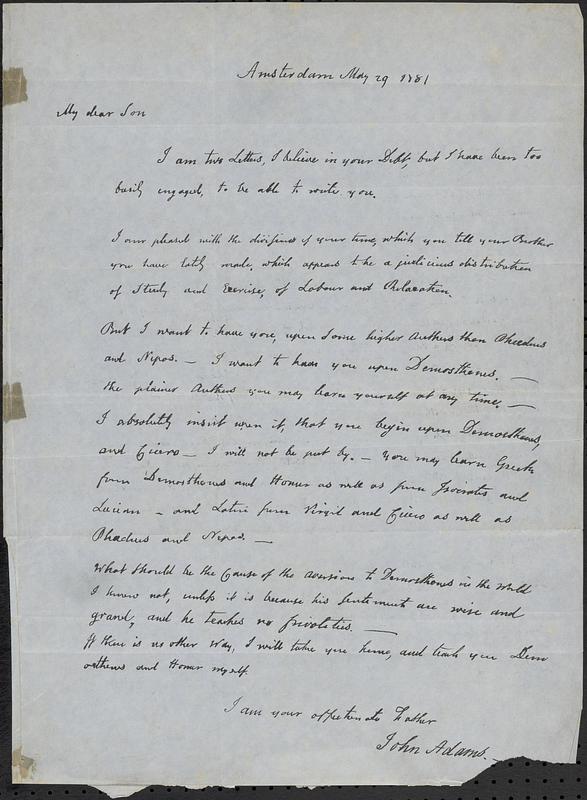 Amsterdam May 29 1781
My dear Son
I am two Letters, I believe in your Debt, but I have been too
busily engaged, to be able to write you.
I am pleased with the division of your time, which you tell your Brother
you have lately made, which appears to be a judicious distribution
of Study and Exercise, of Labour and Relaxation.
But I want to have you, upon some higher Authors than Phaedrus
and Nepos. — I want to have you upon Demosthenes. —
the plainer Authors you may learn yourself at any time. —
I absolutely insist upon it, that you begin upon Demosthenes,
and Cicero — I will not be put by. — you may learn Greek
from Demosthenes and Homer as well as from Isocrates and
Lucian — and Latin from Virgil and Cicero as well as
Phadrus and Nepos. —
What should be the Cause of the aversion to Demosthenes in the World
I know not, unless it is because his sentiments are wise and
grand, and he teaches no frivolities. —
If there is no other Way, I will take you home, and teach you Dem
osthenes and Homer myself.
I am your affectionate Father
John Adams. —